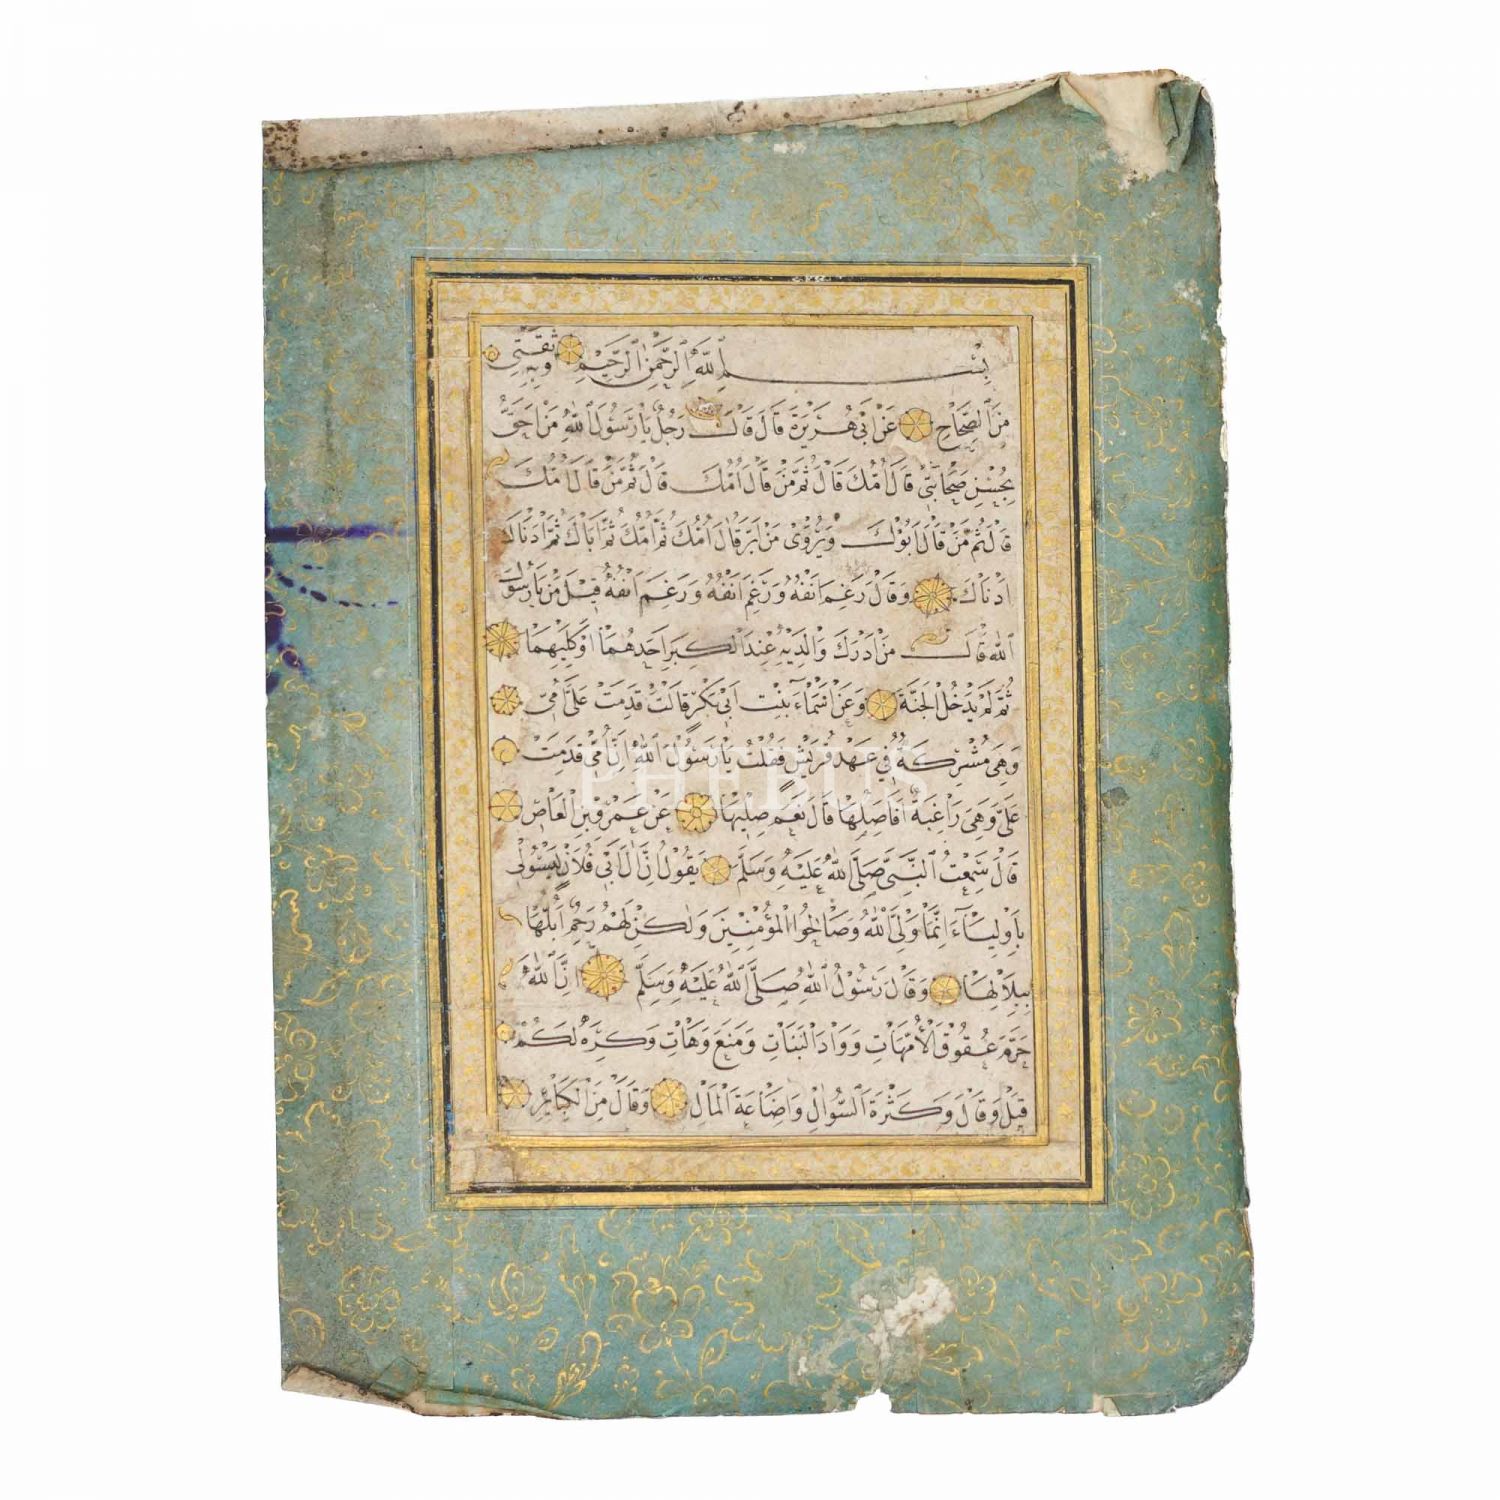 بِسْمِ اللّٰهِ الرَّحْمٰنِ الرَّحِيْمِ وَبِهِ ثِقَتِي
مِنَ الصِّحَاحِ عَنْ اَبِي هُرَيْرَةَ قَالَ قَالَ رَجُلٌ يَا رَسُوْلَ اللّٰهِ مَنْ اَحَقُّ
بِحُسْنِ صَحَابَتِيْ قَالَ اُمُّكَ قَالَ ثُمَّ مَنْ قَالَ اُمُّكَ قَالَ ثُمَّ مَنْ قَالَ اُمُّكَ
قَالَ ثُمَّ مَنْ قَالَ اَبُوْكَ وَيُرْوٰى مَنْ اَبَرُّ قَالَ اُمَّكَ ثُمَّ اُمَّكَ ثُمَّ اَبَاكَ ثُمَّ اَدْنَاكَ
اَدْنَاكَ وَقَالَ رَغِمَ اَنْفُهُ وَرَغِمَ اَنْفُهُ وَرَغِمَ اَنْفُهُ قِيْلَ مَنْ يَا رَسُوْلَ
اللّٰهِ قَالَ مَنْ اَدْرَكَ وَالِدَيْهِ عِنْدَ الْكِبَرِ اَحَدَهُمَا اَوْ كِلَيْهِمَا
ثُمَّ لَمْ يَدْخُلِ الْجَنَّةَ وَعَنْ اَسْمَاءَ بِنْتِ اَبِي بَكْرٍ قَالَتْ قَدِمَتْ عَلَيَّ اُمِّيْ
وَهِيَ مُشْرِكَةٌ فِي عَهْدِ قُرَيْشٍ فَقُلْتُ يَا رَسُوْلَ اللّٰهِ اِنَّ اُمِّيْ قَدِمَتْ
PHEBUS
عَلَيَّ وَهِيَ رَاغِبَةٌ اَفَاَصِلُهَا قَالَ نَعَمْ صِلِيْهَا عَنْ عَمْرِو بْنِ الْعَاصِ
قَالَ سَمِعْتُ النَّبِيَّ صَلَّى اللّٰهُ عَلَيْهِ وَسَلَّمَ يَقُوْلُ اِنَّ اٰلَ اَبِيْ فُلَانٍ لَيْسُوْا لِيْ
بِاَوْلِيَاءَ اِنَّمَا وَلِيِّيَ اللّٰهُ وَصَالِحُوا الْمُؤْمِنِيْنَ وَلٰكِنْ لَهُمْ رَحِمٌ اَبُلُّهَا
بِبِلَالِهَا وَقَالَ رَسُوْلُ اللّٰهِ صَلَّى اللّٰهُ عَلَيْهِ وَسَلَّمَ اِنَّ اللّٰهَ
حَرَّمَ عُقُوْقَ الْاُمَّهَاتِ وَوَاْدَ الْبَنَاتِ وَمَنَعَ وَهَاتِ وَكَرِهَ لَكُمْ
قِيْلَ وَقَالَ وَكَثْرَةَ السُّوَالِ وَاِضَاعَةَ الْمَالِ وَقَالَ مِنَ الْكَبَائِرِ